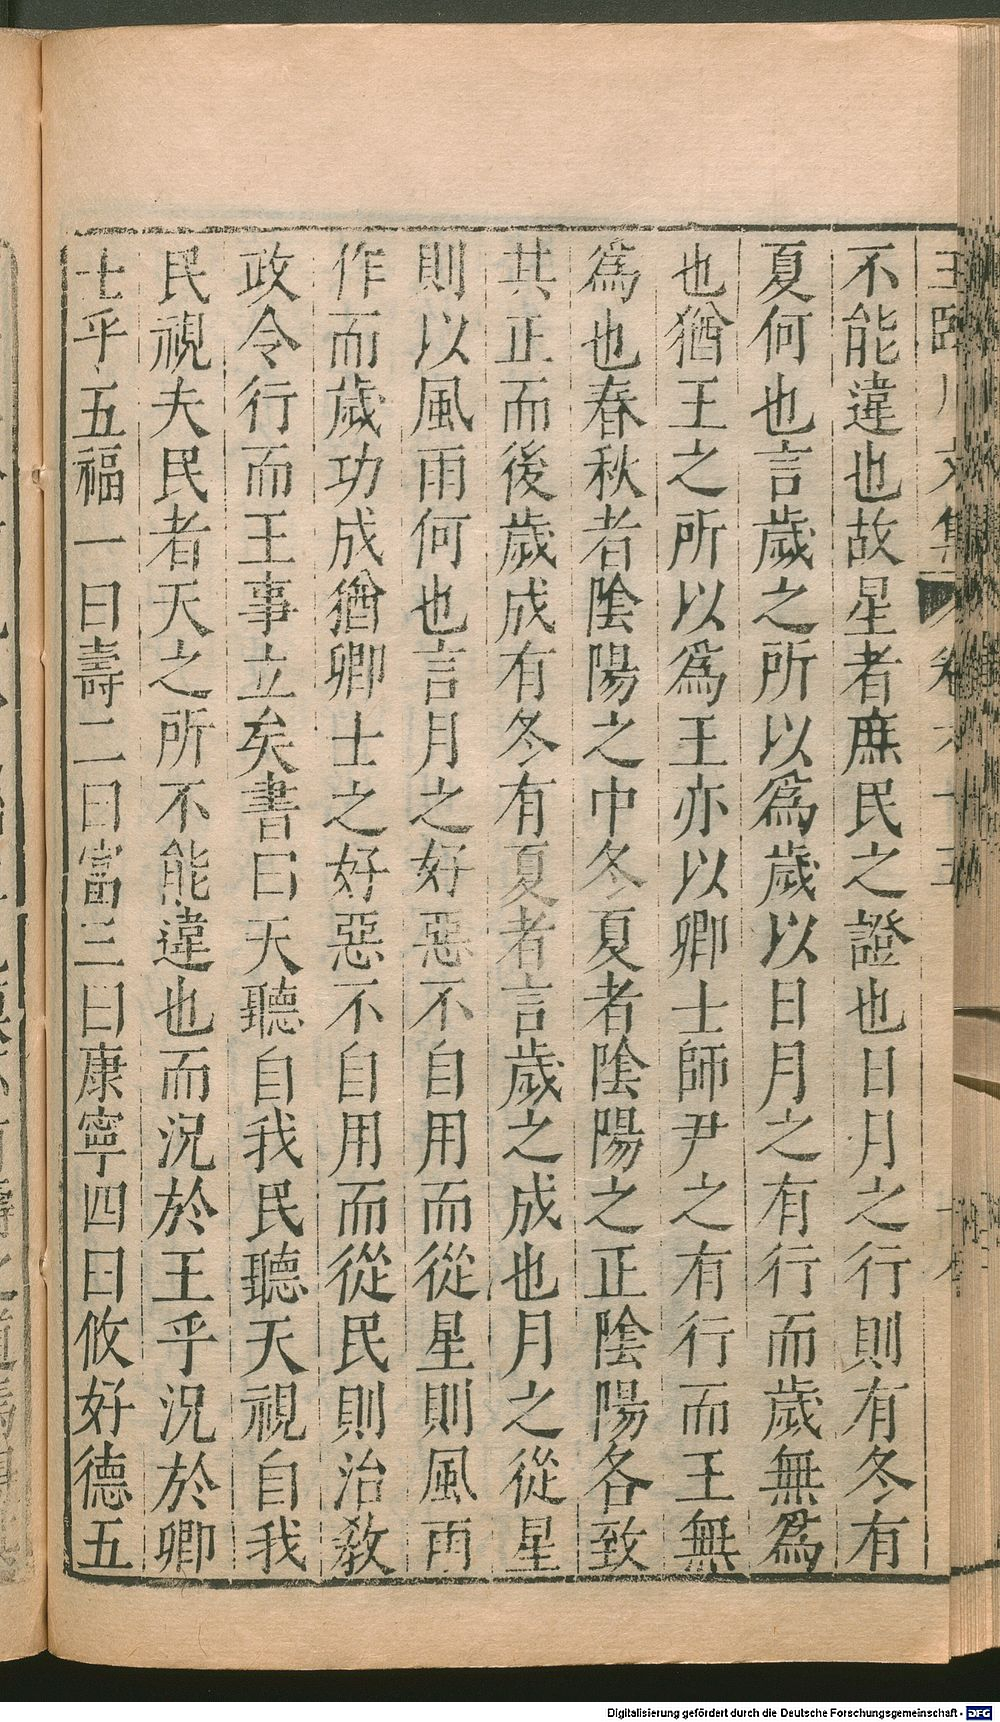 不能違也故星者庶民之證也日月之行則有冬有
夏何也言歲之所以爲歲以日月之有行而歲無爲
也猶王之所以爲王亦以卿士師尹之有行而王無
爲也春秋者陰陽之中冬夏者陰陽之正陰陽各致
其正而後歲成有冬有夏者言歲之成也月之從星
則以風雨何也言月之好惡不自用而從星則風雨
作而歲功成猶卿士之好惡不自用而從民則治教
政令行而王事立矣書曰天聽自我民聽天視自我
民視夫民者天之所不能違也而況於王乎況於卿
士乎五福一曰壽二曰富三曰康寧四曰攸好德五
Digitalisierung gefördert durch die Deutsche Forschungsgemeinschaft - DFG